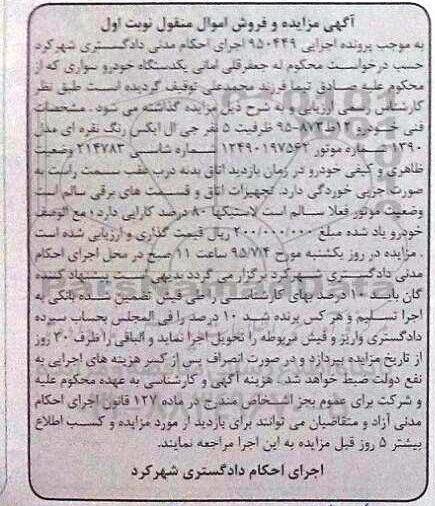 آگهی مزایده و فروش اموال منقول نوبت اول
به موجب پرونده اجرایی ۹۵۰۴۴۹ اجرای احکام مدنی دادگستری شهرکرد
حسب درخواست محکوم له جعفرقلی امانی یکدستگاه خودرو سواری که از
محکوم علیه صادق نیما فرزند محمدعلی توقیف گردیده است طبق نظر
کارشناس رسمی ارزیابی و به شرح ذیل مزایده گذاشته می شود. مشخصات
فنی خودرو ۱۲ط۸۷۳-۹۵ ظرفیت ۵ نفر جی ال ایکس رنگ نقره ای مدل
۱۳۹۰ شماره موتور ۱۲۴۹۰۱۹۷۵۶۲ شماره شاسی ۲۱۴۷۸۳ وضعیت
ظاهری و کیفی خودرو در زمان بازدید اتاق بدنه درب عقب سمت راست به
صورت جزیی خوردگی دارد. تجهیزات اتاق و قسمت های برقی سالم است
وضعیت موتور فعلا سالم است لاستیکها ۸۰ درصد کارایی دارد، مع الوصف
خودرو یاد شده مبلغ ۲۰۰/۰۰۰/۰۰۰ ریال قیمت گذاری و ارزیابی شده است
. مزایده در روز یکشنبه مورخ ۹۵/۷/۴ ساعت ۱۱ صبح در محل اجرای احکام
مدنی دادگستری شهرکرد برگزار می گردد بدیهی است پیشنهاد کننده
گان باید ۱۰ درصد بهای کارشناسی را طی فیش تضمین شده بانکی به
اجرا تسلیم و هر کس برنده شد ۱۰ درصد را فی المجلس بحساب سپرده
دادگستری واریز و فیش مربوطه را تحویل اجرا نماید و الباقی را ظرف ۳۰ روز
از تاریخ مزایده بپردازد و در صورت انصراف پس از کسر هزینه های اجرایی به
نفع دولت ضبط خواهد شد. هزینه آگهی و کارشناسی به عهده محکوم علیه
و شرکت برای عموم بجز اشخاص مندرج در ماده ۱۲۷ قانون اجرای احکام
مدنی آزاد و متقاضیان می توانند برای بازدید از مورد مزایده و کسب اطلاع
بیشتر ۵ روز قبل مزایده به این اجرا مراجعه نمایند.
اجرای احکام دادگستری شهرکرد